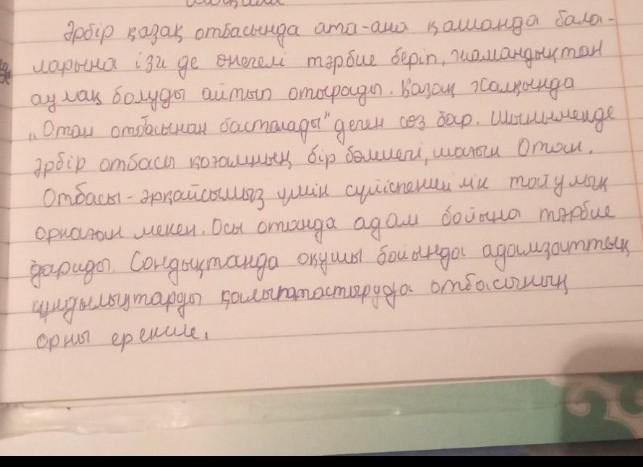 Әрбір қазақ отбасында ата-ана қашанда бала-
ларына ізгі де өнегелі тәрбие беріп, жамандықтан
аулақ болуды айтып отырады. Қазақ халқында
„Отан отбасынан басталады" деген сөз бар. Шынымен де
әрбір отбасы қоғамның бір бөлшегі, шағын Отан.
Отбасы - әрқайсымыз үшін сүйіспеншілік
орнаған мекен. Осы отанда адам бойына тәрбие
дариды. Сондықтанда оқушы бойында адамзаттық
құндылықтарды қалыптастыруда отбасының
орны ерекше.